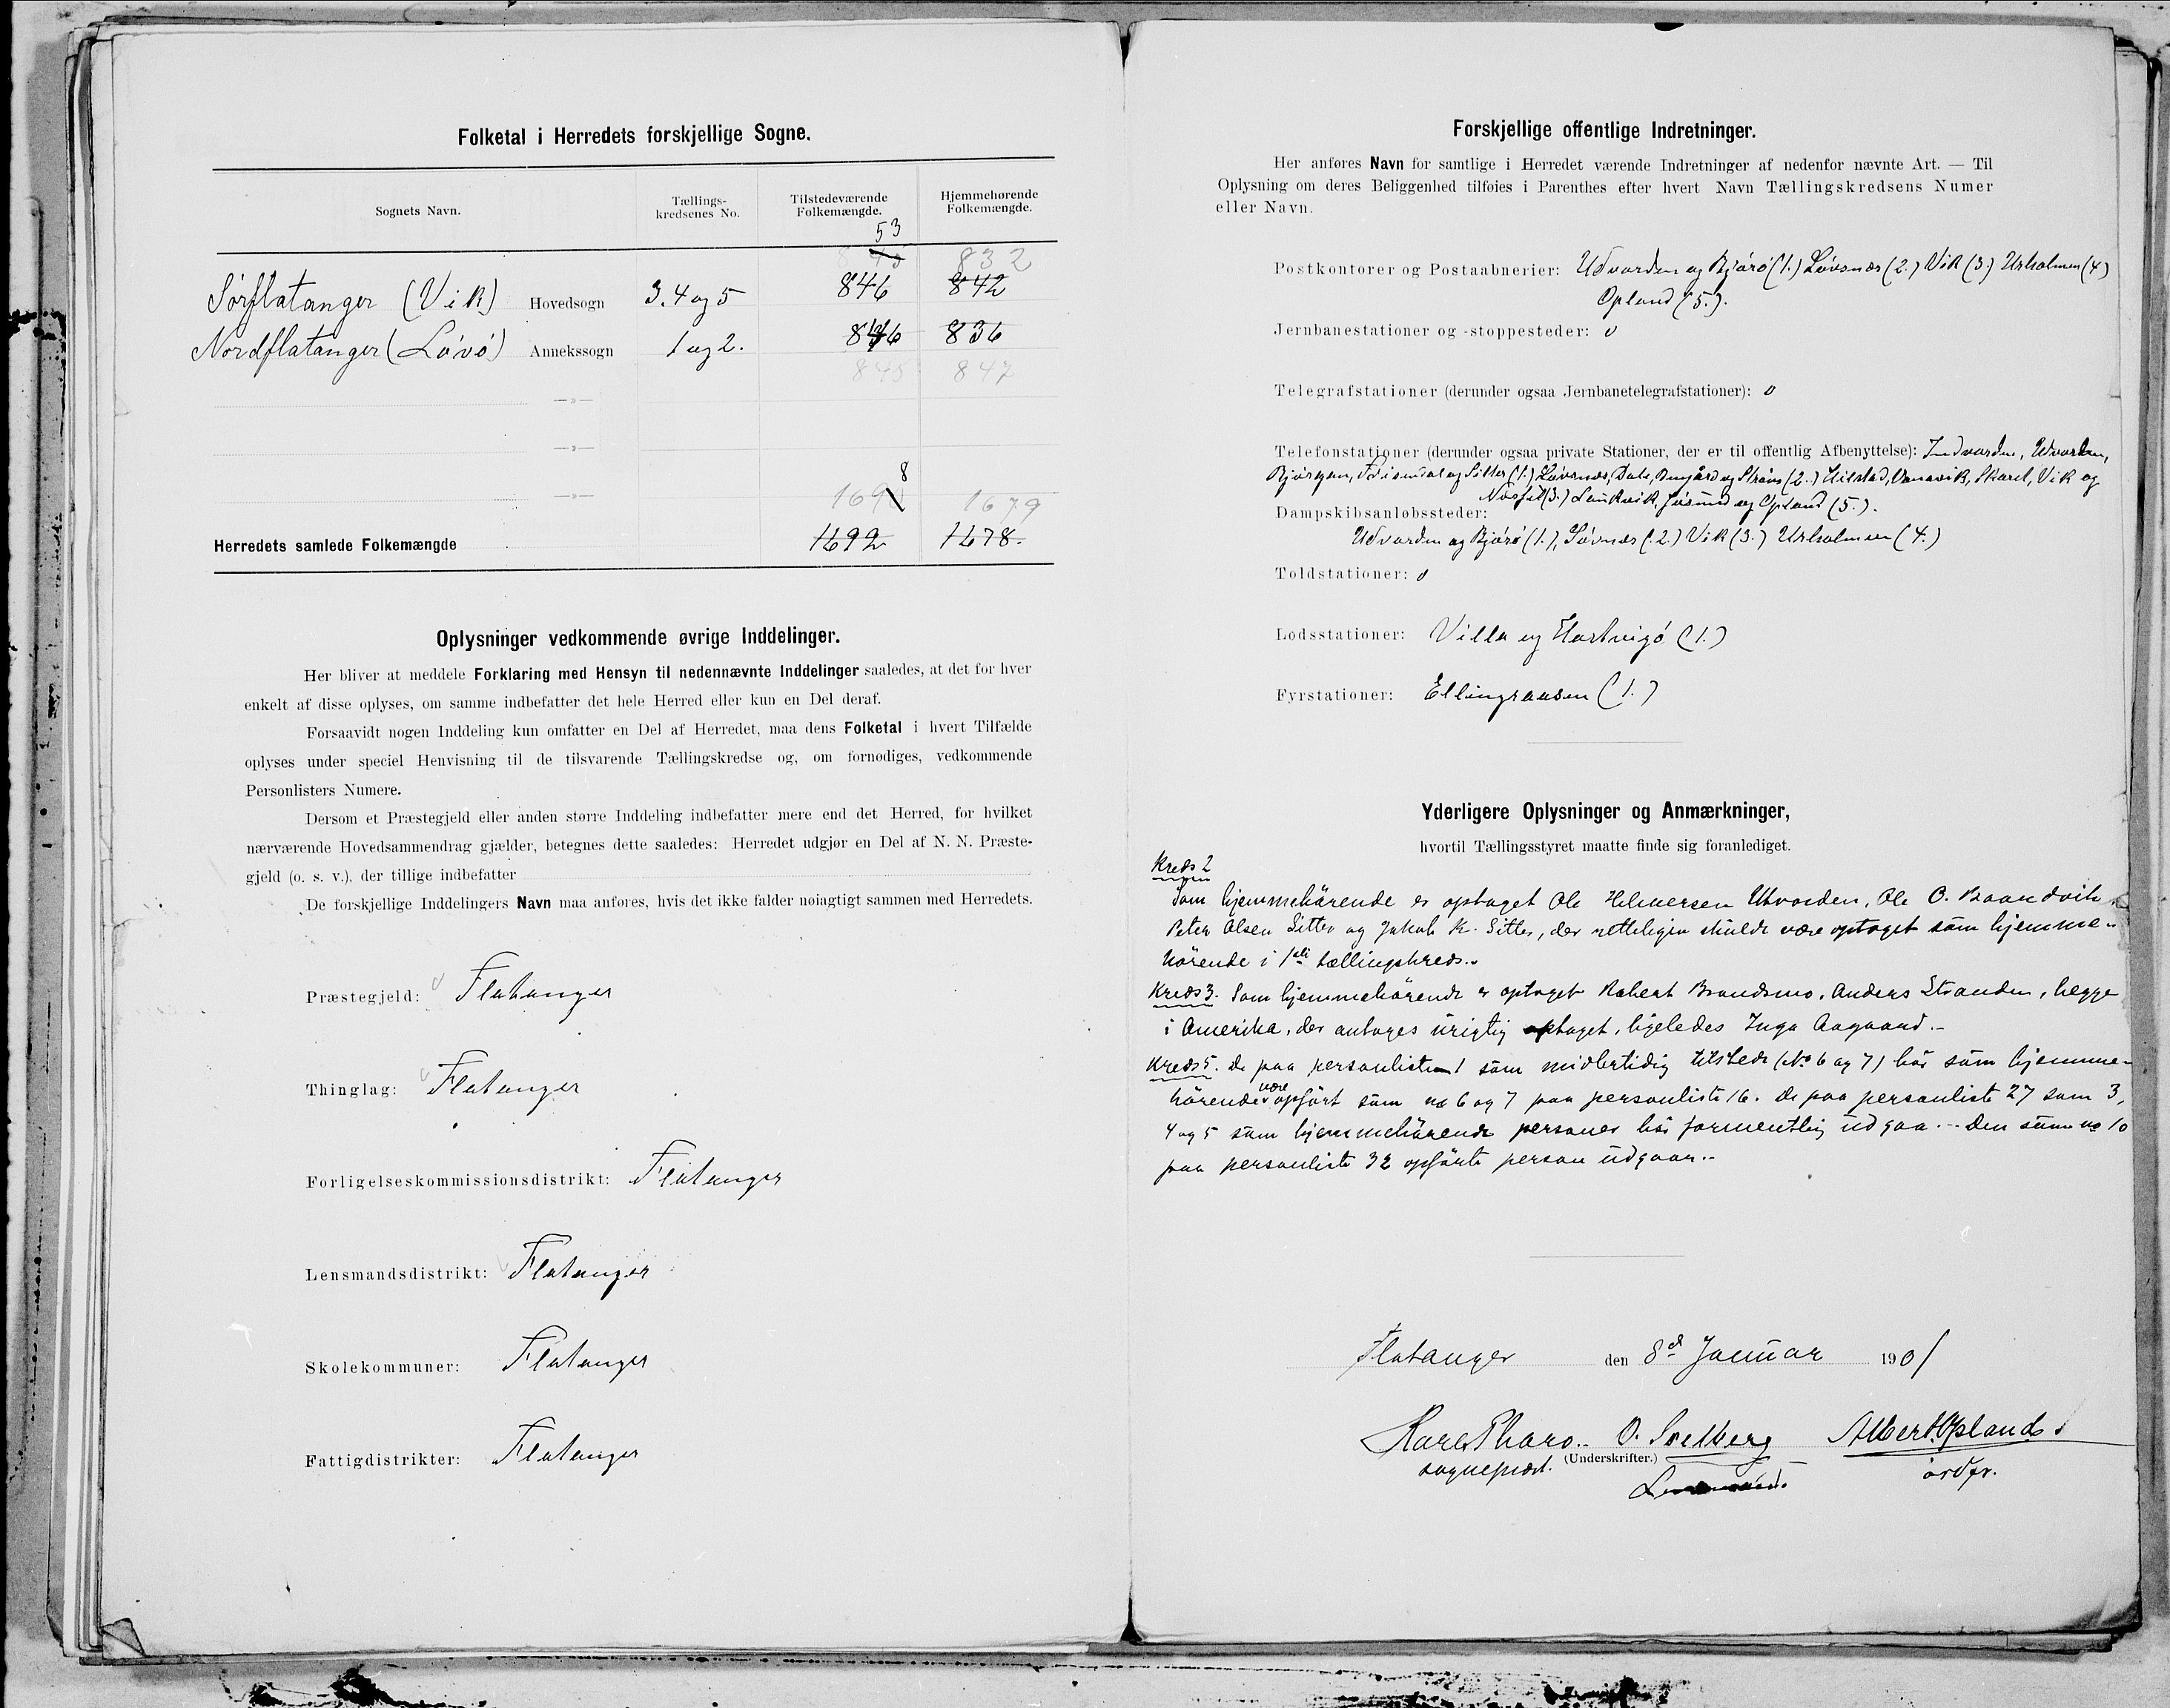 Folketal i Herredets forskjellige Sogne.
Sognets Navn.
Tællings-
kredsenes No.
Tilstedeværende
Folkemængde.
Hjemmehørende
Folkemængde.
53
832
Sørflatanger (Vik) Hovedsogn 3. 4 og 5 846 842
Nordflatanger (Lövö) Annekssogn 1 og 2. 846 836
845 847
—»—
—»—
8
—»— 169 1679
Herredets samlede Folkemængde 1692 1678.
Oplysninger vedkommende øvrige Inddelinger.
Her bliver at meddele Forklaring med Hensyn til nedennævnte Inddelinger saaledes, at det for hver
enkelt af disse oplyses, om samme indbefatter det hele Herred eller kun en Del deraf.
Forsaavidt nogen Inddeling kun omfatter en Del af Herredet, maa dens Folketal i hvert Tilfælde
oplyses under speciel Henvisning til de tilsvarende Tællingskredse og, om fornødiges, vedkommende
Personlisters Numere.
Dersom et Præstegjeld eller anden større Inddeling indbefatter mere end det Herred, for hvilket
nærværende Hovedsammendrag gjælder, betegnes dette saaledes: Herredet udgjør en Del af N. N. Præste-
gjeld (o. s. v.), der tillige indbefatter
De forskjellige Inddelingers Navn maa anføres, hvis det ikke falder nøiagtigt sammen med Herredets.
Præstegjeld: Flatanger
Thinglag: Flatanger
Forligelseskommissionsdistrikt: Flatanger
Lensmandsdistrikt: Flatanger
Skolekommuner: Flatanger
Fattigdistrikter: Flatanger
Forskjellige offentlige Indretninger.
Her anføres Navn for samtlige i Herredet værende Indretninger af nedenfor nævnte Art. — Til
Oplysning om deres Beliggenhed tilføies i Parenthes efter hvert Navn Tællingskredsens Numer
eller Navn.
Postkontorer og Postaabnerier: Udvorden og Bjørö (1.) Lövsnæs (2.) Vik (3.) Utholmen (4)
Opland (5.).
Jernbanestationer og -stoppesteder: 0
Telegrafstationer (derunder ogsaa Jernbanetelegrafstationer): 0
Telefonstationer (derunder ogsaa private Stationer, der er til offentlig Afbenyttelse): Indvorden, Udvorden,
og Sitter (1.) Lövsnæs, Dale, og Strøm (2.) Hilstad, Vik og
(3.) Lauvik, Jøssund og Opland (5.).
Dampskibsanløbssteder:
Udvorden og Bjørö (1.), Lövsnæs (2.) Vik (3.) Utholmen (4.)
Toldstationer: 0
Lodsstationer: Villa og Hartvigö (1.)
Fyrstationer: Ellingraasen (1.)
Yderligere Oplysninger og Anmærkninger,
hvortil Tællingsstyret maatte finde sig foranlediget.
Kreds 2
Som hjemmehörende er optaget Ole Hilmersen Utvorden, Ole O.
Peter Olsen Sitter og Jakob K. Sitter, der retteligen skulde være optaget som hjemme-
hörende i 1ste tællingskreds.-
Kreds 3. Som hjemmehörende er optaget Robert Brandsmo, Anders Stranden, begge
i Amerika, der antages urigtig optaget, ligeledes Inga Aagaard.-
Kreds 5. De paa personliste 1 som midlertidig tilstede (No 6 og 7) bör som hjemme-
hörende være opfört som no 6 og 7 paa personliste 16. De paa personliste 27 som 3,
4 og 5 som hjemmehörende personer bör formentlig udgaa.- Den som no 10
paa personliste 32 opförte person udgaar.-
Flatanger den 8d Januar 1901
Karl Tharo.. O. Solberg Albert Opland
sognepræst. (Underskrifter.) ordfr.
Lensmand.